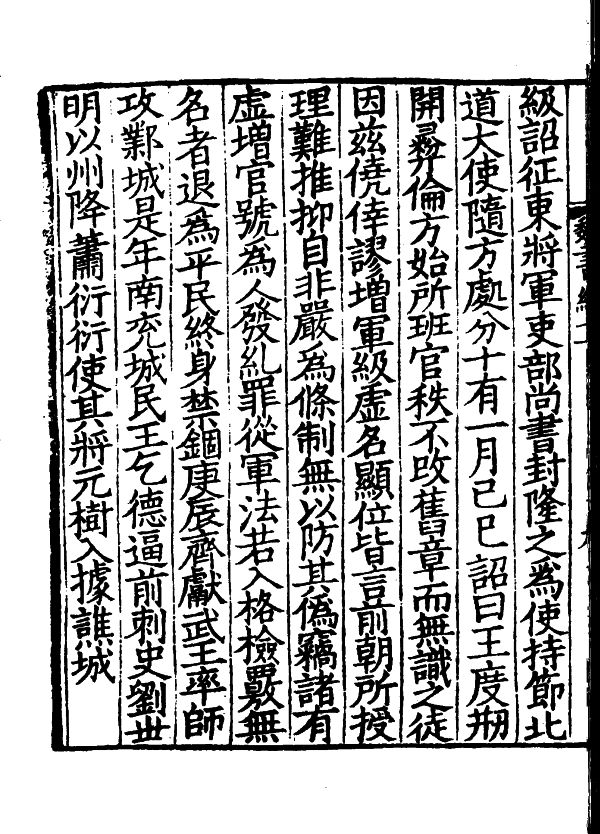 級詔征東將軍吏部尚書封隆之爲使持節北
道大使隨方處分十有一月己巳詔曰王度刱
開彛倫方始所班官秩不改舊章而無識之徒
因兹僥倖謬增軍級虚名顯位皆言前朝所授
理難推抑自非嚴爲條制無以防其僞竊諸有
虚增官號為人發糺罪從軍法若入格檢覈無
名者退爲平民終身禁錮庚辰齊獻武王率師
攻鄴城是年南兖城民王乞德逼前刺史劉世
明以州降蕭衍衍使其將元樹入據譙城